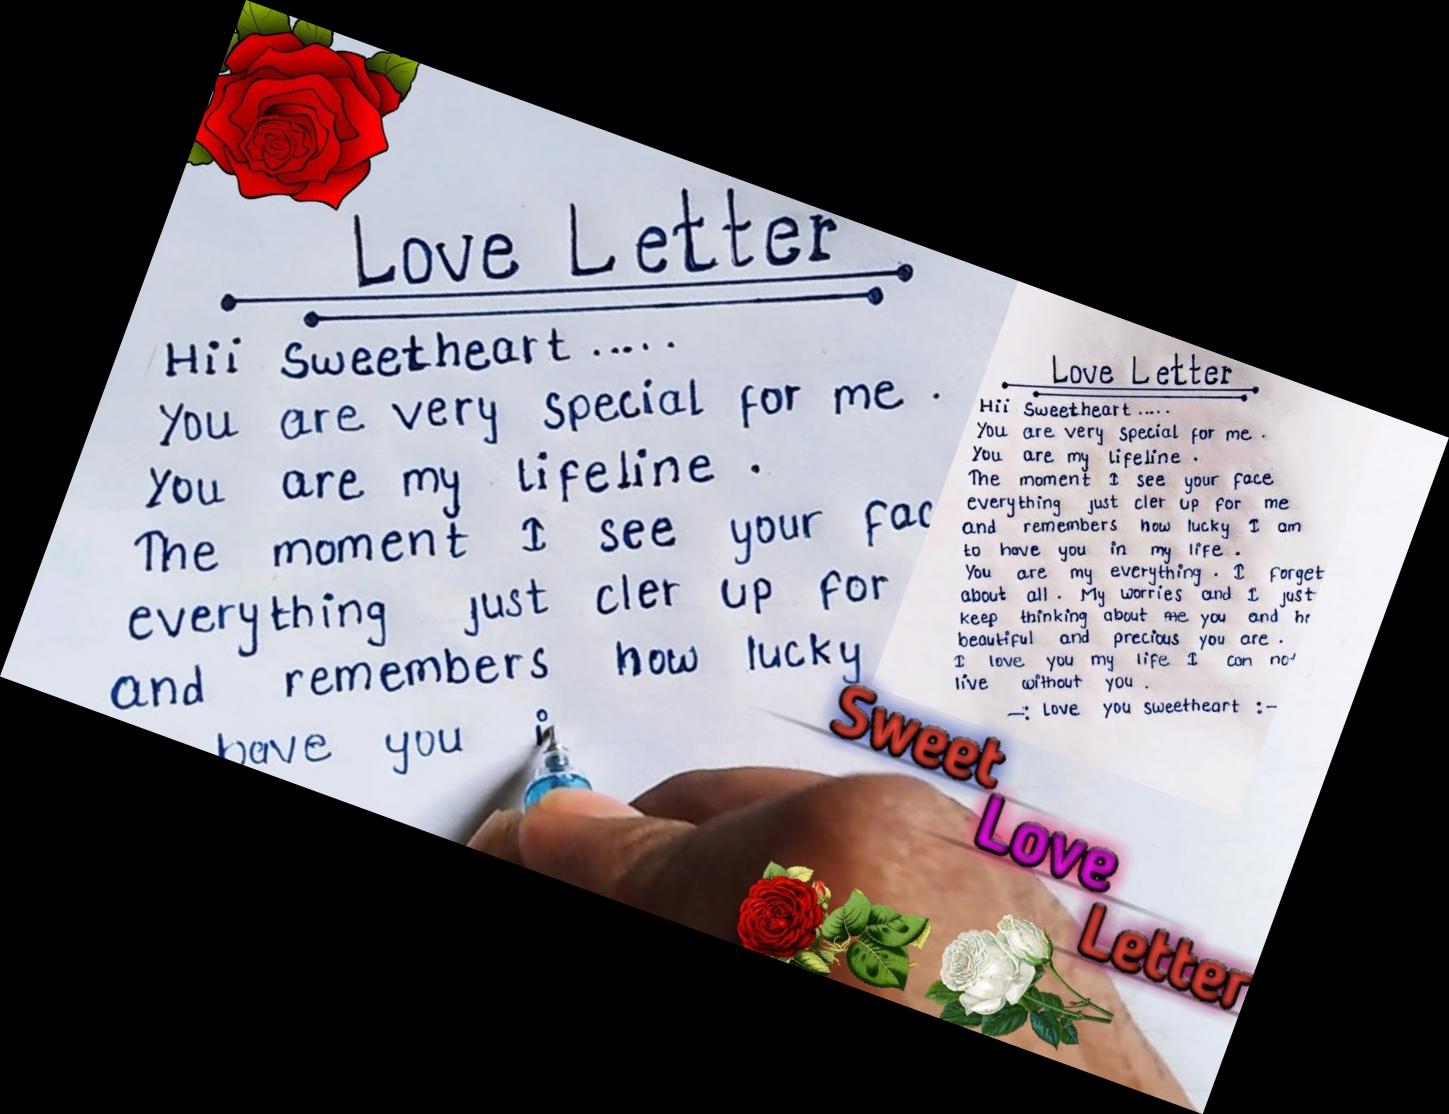 Love Letter
Hii Sweetheart .....
You are very special for me .
You are my lifeline .
The moment I see your fac
everything just cler up for
and remembers how lucky
have you i
Love Letter
Hii Sweetheart .....
You are very special for me .
You are my lifeline .
The moment I see your face
everything just cler up for me
and remembers how lucky I am
to have you in my life .
You are my everything . I forget
about all . My worries and I just
keep thinking about me you and
beautiful and precious you are .
I love you my life I can not
live without you .
—: love you sweetheart :—
Sweet
Love
Letter